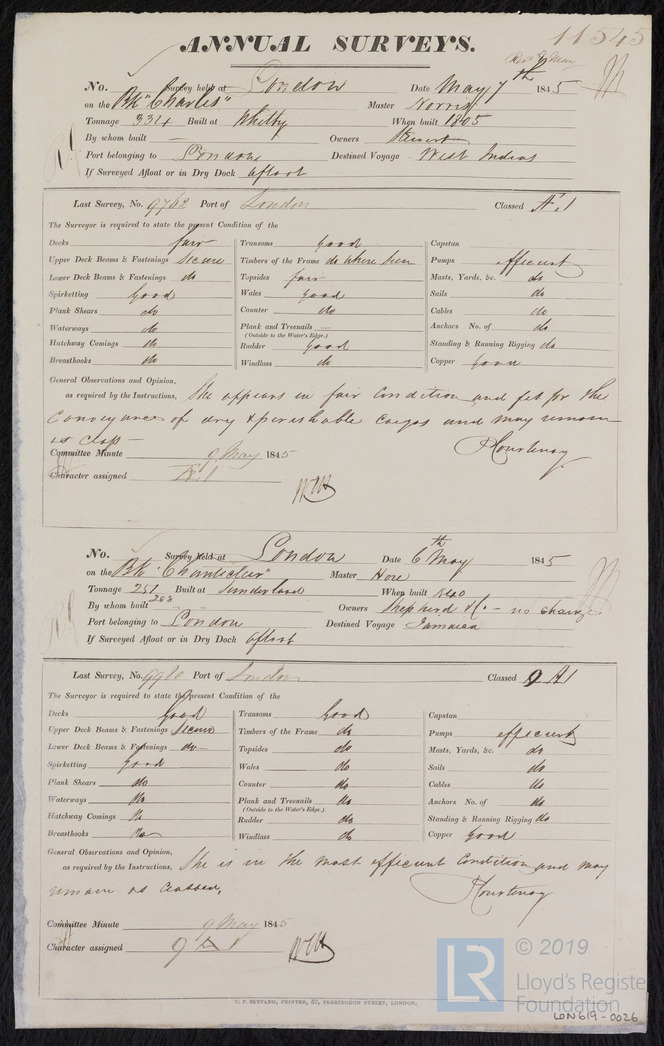 11545
ANNUAL SURVEYS.
No. Survey held at London Date May 7th 1845
on the Bk "Charles" Master Norris
Tonnage 334 Built at Whitby When built 1805
By whom built — Owners Stewart
Port belonging to London Destined Voyage West Indies
If Surveyed Afloat or in Dry Dock afloat
Last Survey, No. 9762 Port of London Classed Æ 1
The Surveyor is required to state the present Condition of the
Decks fair Transoms good Capstan
Upper Deck Beams & Fastenings Secure Timbers of the Frame do where seen Pumps efficient
Lower Deck Beams & Fastenings do Topsides fair Masts, Yards, &c. do
Spirketting Good Wales good Sails do
Plank Shears do Counter do Cables do
Waterways do Plank and Treenails — Anchors No. of do
(Outside to the Water's Edge.)
Hatchway Comings do Rudder good Standing & Running Rigging do
Breasthooks do Windlass do Copper good
General Observations and Opinion,
as required by the Instructions, She appears in fair condition and fit for the
conveyance of dry & perishable cargos and may remain
as class —
Courtenay
Committee Minute 9 May 1845
Character assigned Æ 1
No. Survey held at London Date 6th May 1845
on the Bk "Chanticleer" Master Hore
Tonnage 251 Built at Sunderland When built
By whom built 288 Owners Shepherd & Co. — no change
Port belonging to London Destined Voyage Jamaica
If Surveyed Afloat or in Dry Dock afloat
Last Survey, No. 9980 Port of London Classed 9 A1
The Surveyor is required to state the present Condition of the
Decks Good Transoms Good Capstan
Upper Deck Beams & Fastenings Secure Timbers of the Frame do Pumps efficient
Lower Deck Beams & Fastenings do Topsides do Masts, Yards, &c. do
Spirketting good Wales do Sails do
Plank Shears do Counter do Cables do
Waterways do Plank and Treenails do Anchors No. of do
(Outside to the Water's Edge.)
Hatchway Comings do Rudder do Standing & Running Rigging do
Breasthooks do Windlass do Copper Good
General Observations and Opinion,
as required by the Instructions, She is in the most efficient condition and may
remain as classed,
Courtenay
Committee Minute 9 May 1845
Character assigned 9 A 1
C. F. SEYFANG, PRINTER, 57, FARRINGDON STREET, LONDON.
LR © 2019
Lloyd's Registe
Foundation
LON619-0026